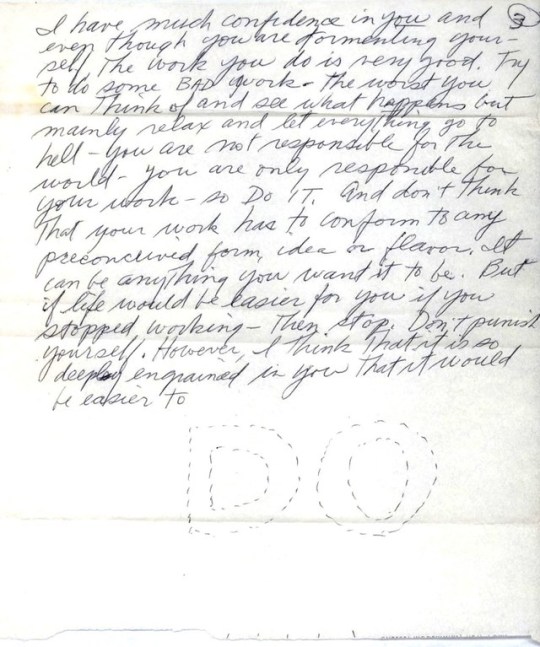 3
I have much confidence in you and
even though you are tormenting your-
self the work you do is very good. Try
to do some BAD work - the worst you
can think of and see what happens but
mainly relax and let everything go to
hell - you are not responsible for the
world - you are only responsible for
your work - so DO IT. And don't think
that your work has to conform to any
preconceived form, idea or flavor. It
can be anything you want it to be. But
if life would be easier for you if you
stopped working - then stop. Don't punish
yourself. However, I think that it is so
deeply engrained in you that it would
be easier to
DO